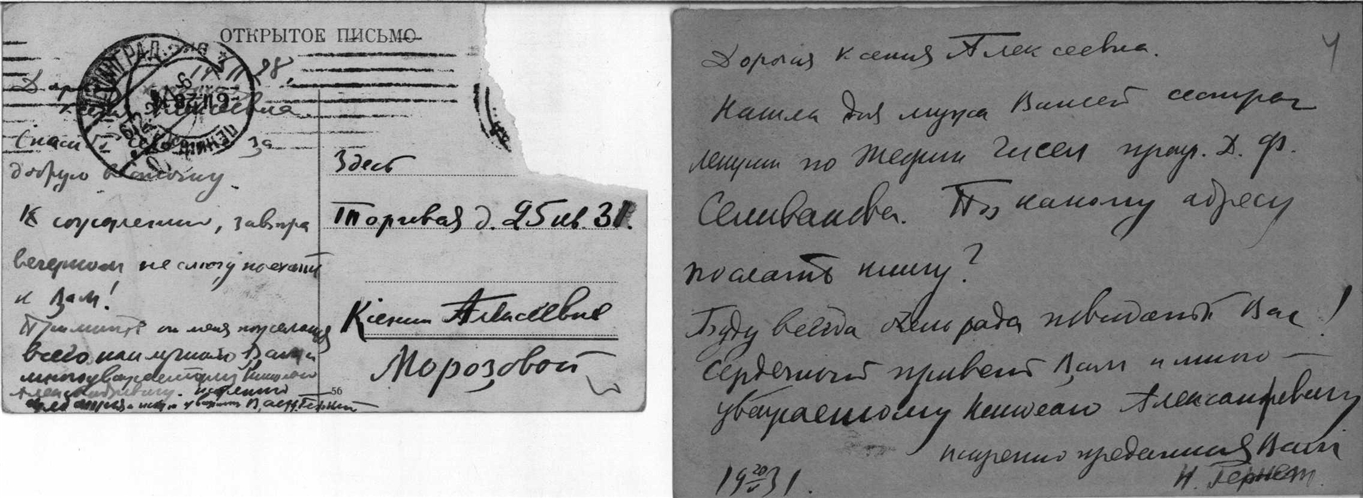 ОТКРЫТОЕ ПИСЬМО
ЛЕНИНГРАД
Дорогая
Ксения Алексеевна
Спасибо за
добрую весточку.
К сожалению, завтра
вечером не смогу поехать
к Вам!
Примите от меня пожелания
всего наилучшего Вам и
многоуважаемому Николаю
Александровичу. Искренно
Вас Н. Гернет
56
Здесь
Торговая д. 25 кв. 31.
Ксении Алексеевне
Морозовой
4
Дорогая Ксения Алексеевна.
Нашла для мужа Вашей сестры
лекции по теории чисел проф. Д. Ф.
Селиванова. По какому адресу
послать книгу?
Буду всегда очень рада повидать Вас!
Сердечный привет Вам и много-
уважаемому Николаю Александровичу
искренно преданная Вам
Н. Гернет.
19 20/V 31.